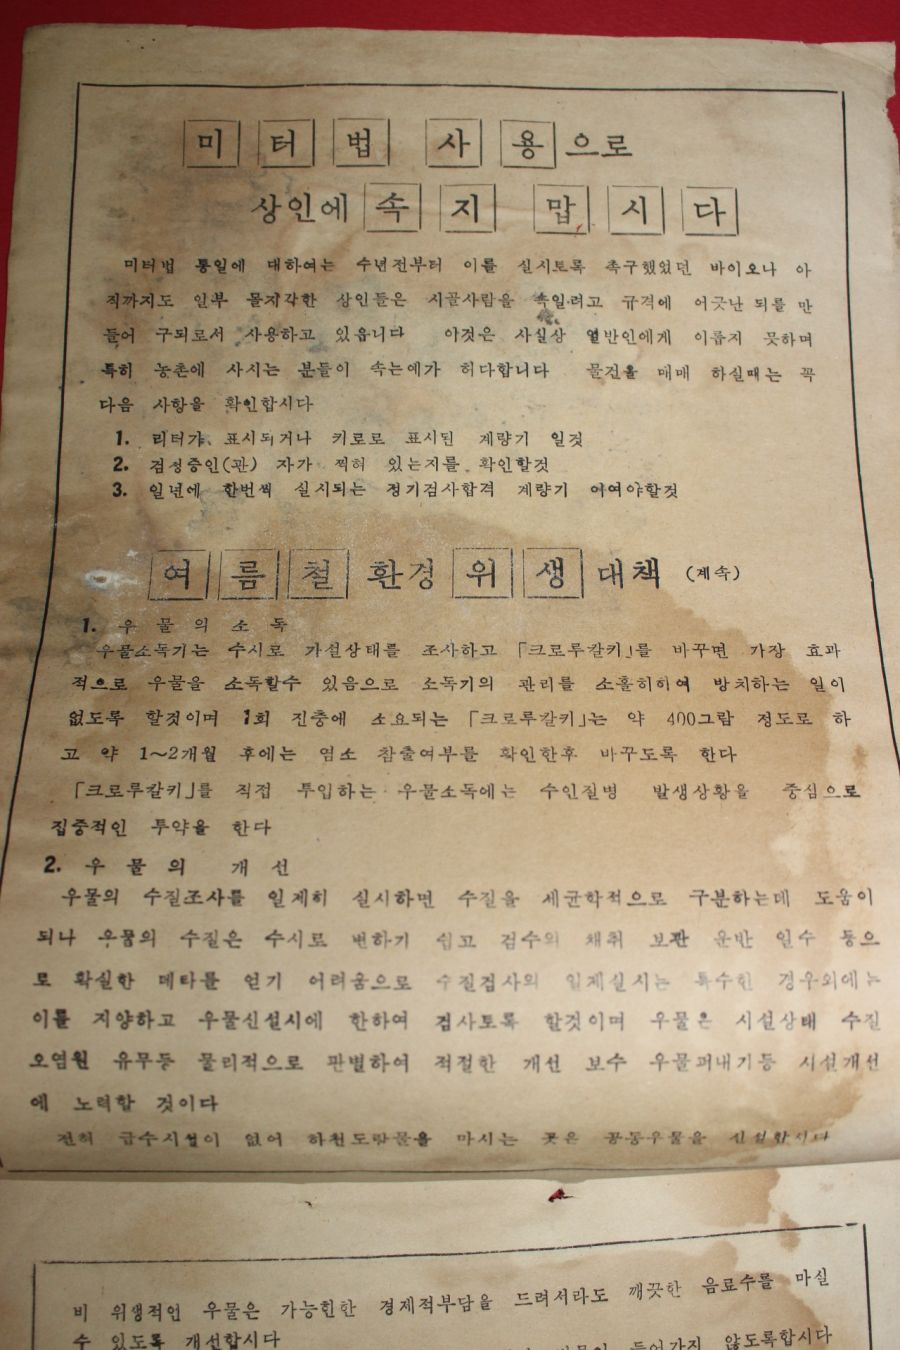 미터법 사용으로
상인에 속지 맙시다
미터법 통일에 대하여는 수년전부터 이를 실시토록 촉구했었던 바이오나 아
직까지도 일부 몰지각한 상인들은 시골사람을 속일려고 규격에 어긋난 되를 만
들어 구되로서 사용하고 있읍니다 아것은 사실상 일반인에게 이롭지 못하며
특히 농촌에 사시는 분들이 속는예가 허다합니다 물건을 매매 하실때는 꼭
다음 사항을 확인합시다
1. 리터가 표시되거나 키로로 표시된 계량기 일것
2. 검정증인(관) 자가 찍혀 있는지를 확인할것
3. 일년에 한번씩 실시되는 정기검사합격 계량기 이여야할것
여름철 환경위생대책 (계속)
1. 우물의 소독
우물소독기는 수시로 가설상태를 조사하고 「크로루칼키」를 바꾸면 가장 효과
적으로 우물을 소독할수 있음으로 소독기의 관리를 소홀히하여 방치하는 일이
없도록 할것이며 1회 진충에 소요되는 「크로루칼키」는 약 400그람 정도로 하
고 약 1~2개월 후에는 염소 참출여부를 확인한후 바꾸도록 한다
「크로루칼키」를 직접 투입하는 우물소독에는 수인질병 발생상황을 중심으로
집중적인 투약을 한다
2. 우물의 개선
우물의 수질조사를 일제히 실시하면 수질을 세균학적으로 구분하는데 도움이
되나 우물의 수질은 수시로 변하기 쉽고 검수의 채취 보관 운반 일수 등으
로 확실한 데타를 얻기 어려움으로 수질검사의 일제실시는 특수한 경우외에는
이를 지양하고 우물신설시에 한하여 검사토록 할것이며 우물은 시설상태 수질
오염원 유무등 물리적으로 판별하여 적절한 개선 보수 우물퍼내기등 시설개선
에 노력할 것이다
전혀 급수시설이 없어 하천도랑물을 마시는 곳은 공동우물을 신설합시다
비 위생적인 우물은 가능한한 경제적부담을 드려서라도 깨끗한 음료수를 마실
수 있도록 개선합시다 들어가지 않도록합시다